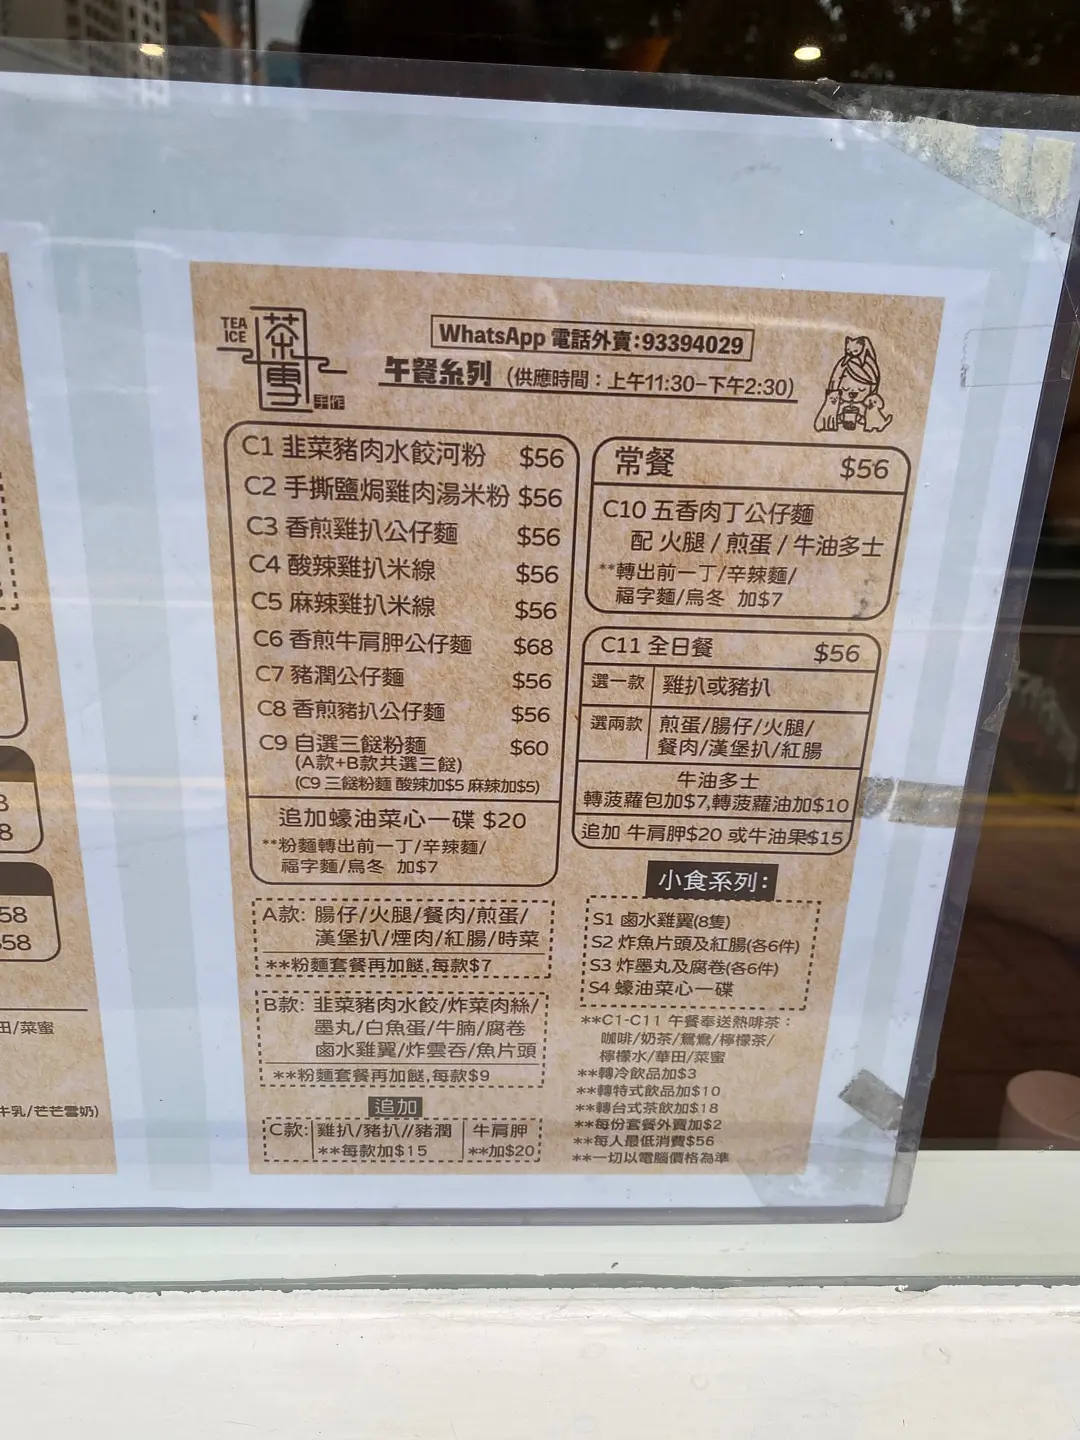 TEA
ICE
茶専
手作
WhatsApp 電話外賣:93394029
午餐系列 (供應時間：上午11:30-下午2:30)
C1 韮菜豬肉水餃河粉 $56
C2 手撕鹽焗雞肉湯米粉 $56
C3 香煎雞扒公仔麵 $56
C4 酸辣雞扒米線 $56
C5 麻辣雞扒米線 $56
C6 香煎牛肩胛公仔麵 $68
C7 豬潤公仔麵 $56
C8 香煎豬扒公仔麵 $56
C9 自選三餸粉麵 $60
(A款+B款共選三餸)
(C9 三餸粉麵 酸辣加$5 麻辣加$5)
追加蠔油菜心一碟 $20
**粉麵轉出前一丁/辛辣麵/
福字麵/烏冬 加$7
A款: 腸仔/火腿/餐肉/煎蛋/
漢堡扒/煙肉/紅腸/時菜
**粉麵套餐再加餸,每款$7
B款: 韮菜豬肉水餃/炸菜肉絲/
墨丸/白魚蛋/牛腩/腐卷
鹵水雞翼/炸雲吞/魚片頭
**粉麵套餐再加餸,每款$9
追加
C款: 雞扒/豬扒//豬潤 牛肩胛
**每款加$15 **加$20
常餐 $56
C10 五香肉丁公仔麵
配 火腿 / 煎蛋 / 牛油多士
**轉出前一丁/辛辣麵/
福字麵/烏冬 加$7
C11 全日餐 $56
選一款 雞扒或豬扒
選兩款 煎蛋/腸仔/火腿/
餐肉/漢堡扒/紅腸
牛油多士
轉菠蘿包加$7,轉菠蘿油加$10
追加 牛肩胛$20 或牛油果$15
小食系列:
S1 鹵水雞翼(8隻)
S2 炸魚片頭及紅腸(各6件)
S3 炸墨丸及腐卷(各6件)
S4 蠔油菜心一碟
**C1-C11 午餐奉送熱啡茶：
咖啡/奶茶/鴛鴦/檸檬茶/
檸檬水/華田/菜蜜
**轉冷飲品加$3
**轉特式飲品加$10
**轉台式茶飲加$18
**每份套餐外賣加$2
**每人最低消費$56
**一切以電腦價格為準
8
8
58
58
田/菜蜜
牛乳/芒芒雪奶)